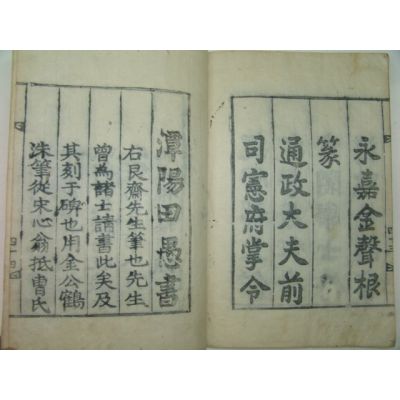 永嘉金聲根
篆
通政大夫前
司憲府掌令
潭陽田愚書
右艮齋先生筆也先生
曾為諸士請書此矣及
其刻于碑也用金公鶴
洙筆從宋心翁抵曺氏